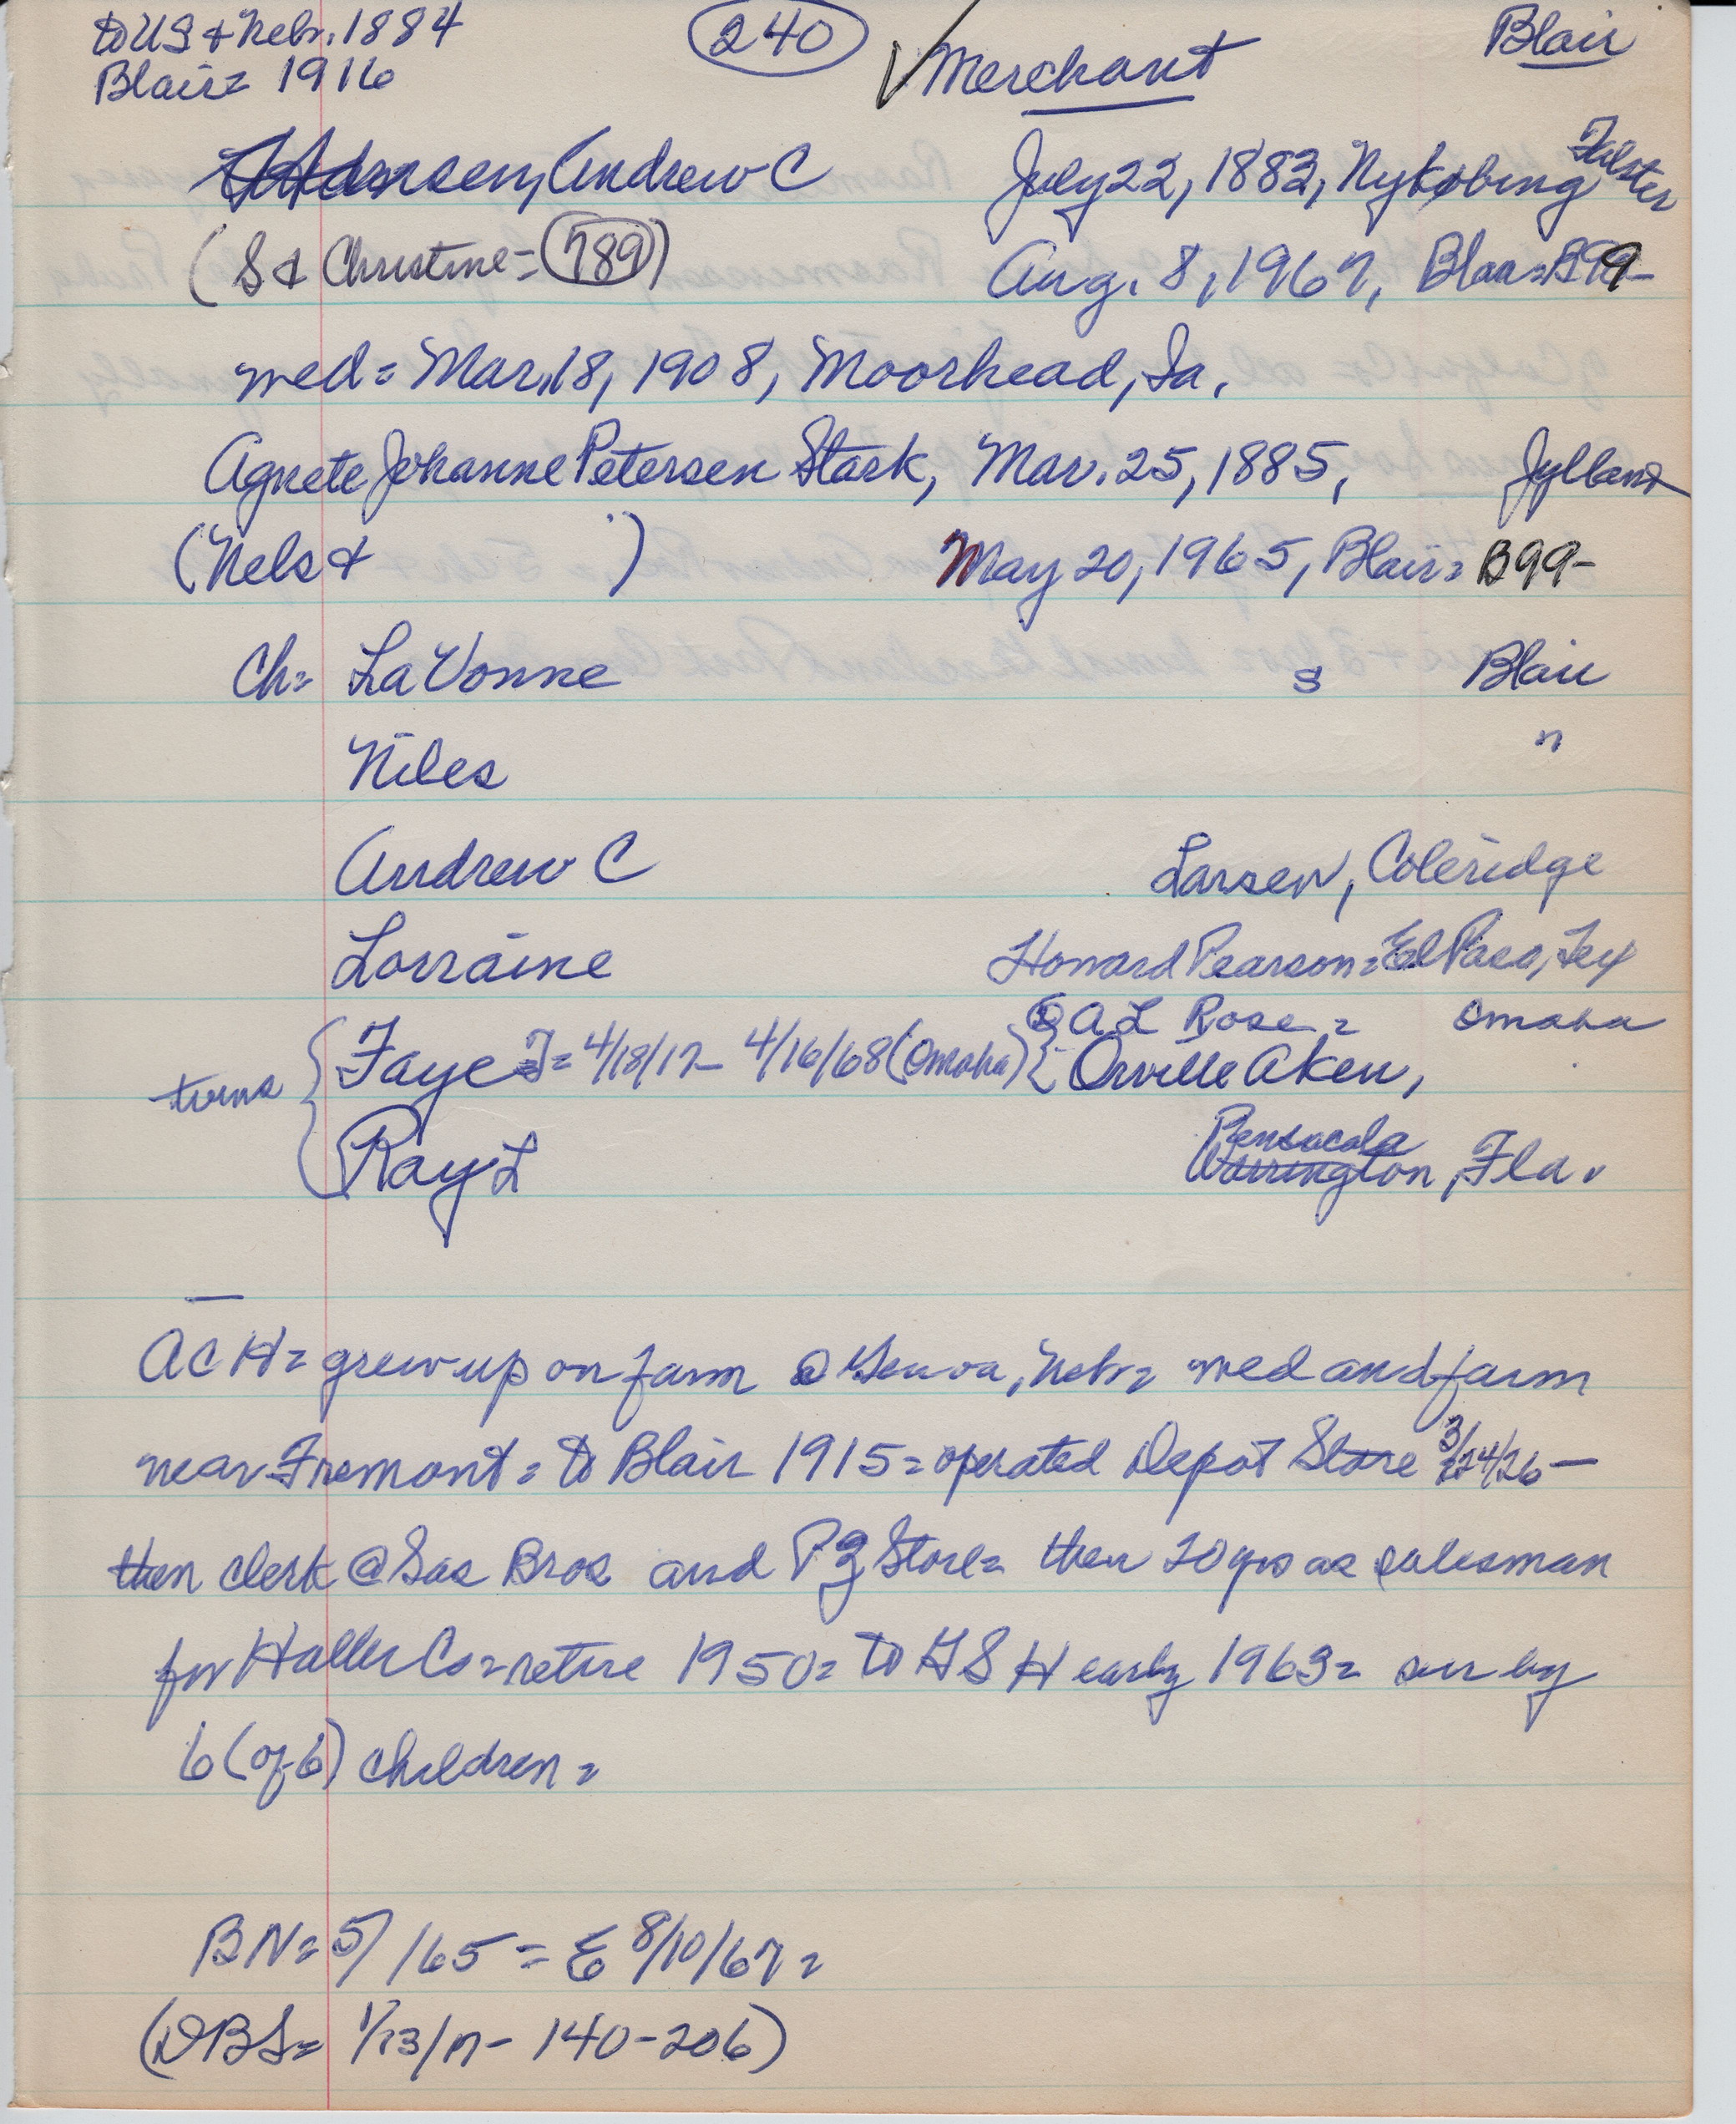 to US & Nebr. 1884
Blair= 1916
240
Merchant
Blair
Hansen, Andrew C July 22, 1883, Nykobing Falster
(S & Christine= 789) Aug. 8, 1967, Blair= B99-
med= Mar. 18, 1908, Moorhead, Ia.
Agnete Johanne Petersen Stark, Mar. 25, 1885, Jylland
(Nels & ) May 20, 1965, Blair= B99-
Ch= LaVonne s Blair
Niles "
Andrew C Larsen, Coleridge
Lorraine Howard Pearson= El Paso, Tex
A L Rose= Omaha
twins Faye I= 4/18/17- 4/16/68 (Omaha) Orville Aken,
Pensacola
Ray L Warrington, Fla.
ACH= grew up on farm @ Genoa, Nebr= med and farm
near Fremont= to Blair 1915= operated Depot Store 3/24/26-
then clerk @ Sas Bros and PG Store= then 20 yrs as salesman
for Haller Co= retire 1950= to GSH early 1963= sur by
6 (of 6) children=
BN= 5/ /65= E 8/10/67=
(DBS= 1/13/17- 140-206)